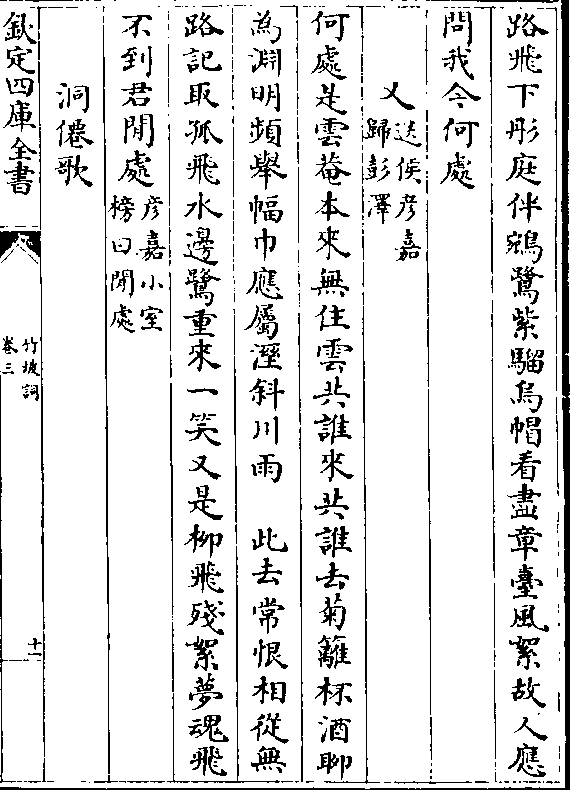 路飛下彤庭伴鵷鷺紫騮烏帽看盡章臺風絮故人應
問我今何處
又送侯彦嘉
歸彭澤
何處是雲菴本來無住雲共誰來共誰去菊籬杯酒聊
為淵明頻舉幅巾應屬溼斜川雨　此去常恨相從無
路記取孤飛水邊鷺重來一笑又是柳飛殘絮夢魂飛
不到君閒處彦嘉小室
榜曰閒處
洞僊歌
欽定四庫全書
竹坡詞
卷三
十一